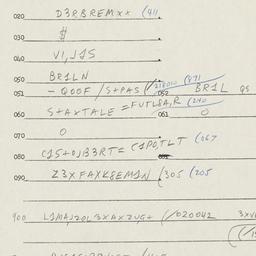 020 D3RBREMXX (411
030 $
040 V1,J1S
050 BR1LN
051 - Q00F / S+PAS ( 218010 (471 052 BR1L QS
060 S+AXTALE = FUTL8A,R (240 061 0
070 0
080 C1S+0JB3RT= C1P0,TLT (067
090 Z3XFAXK8EM1N (305 (205
900 L1MAJ20L 3XAXZUG+ (/020042 3XV